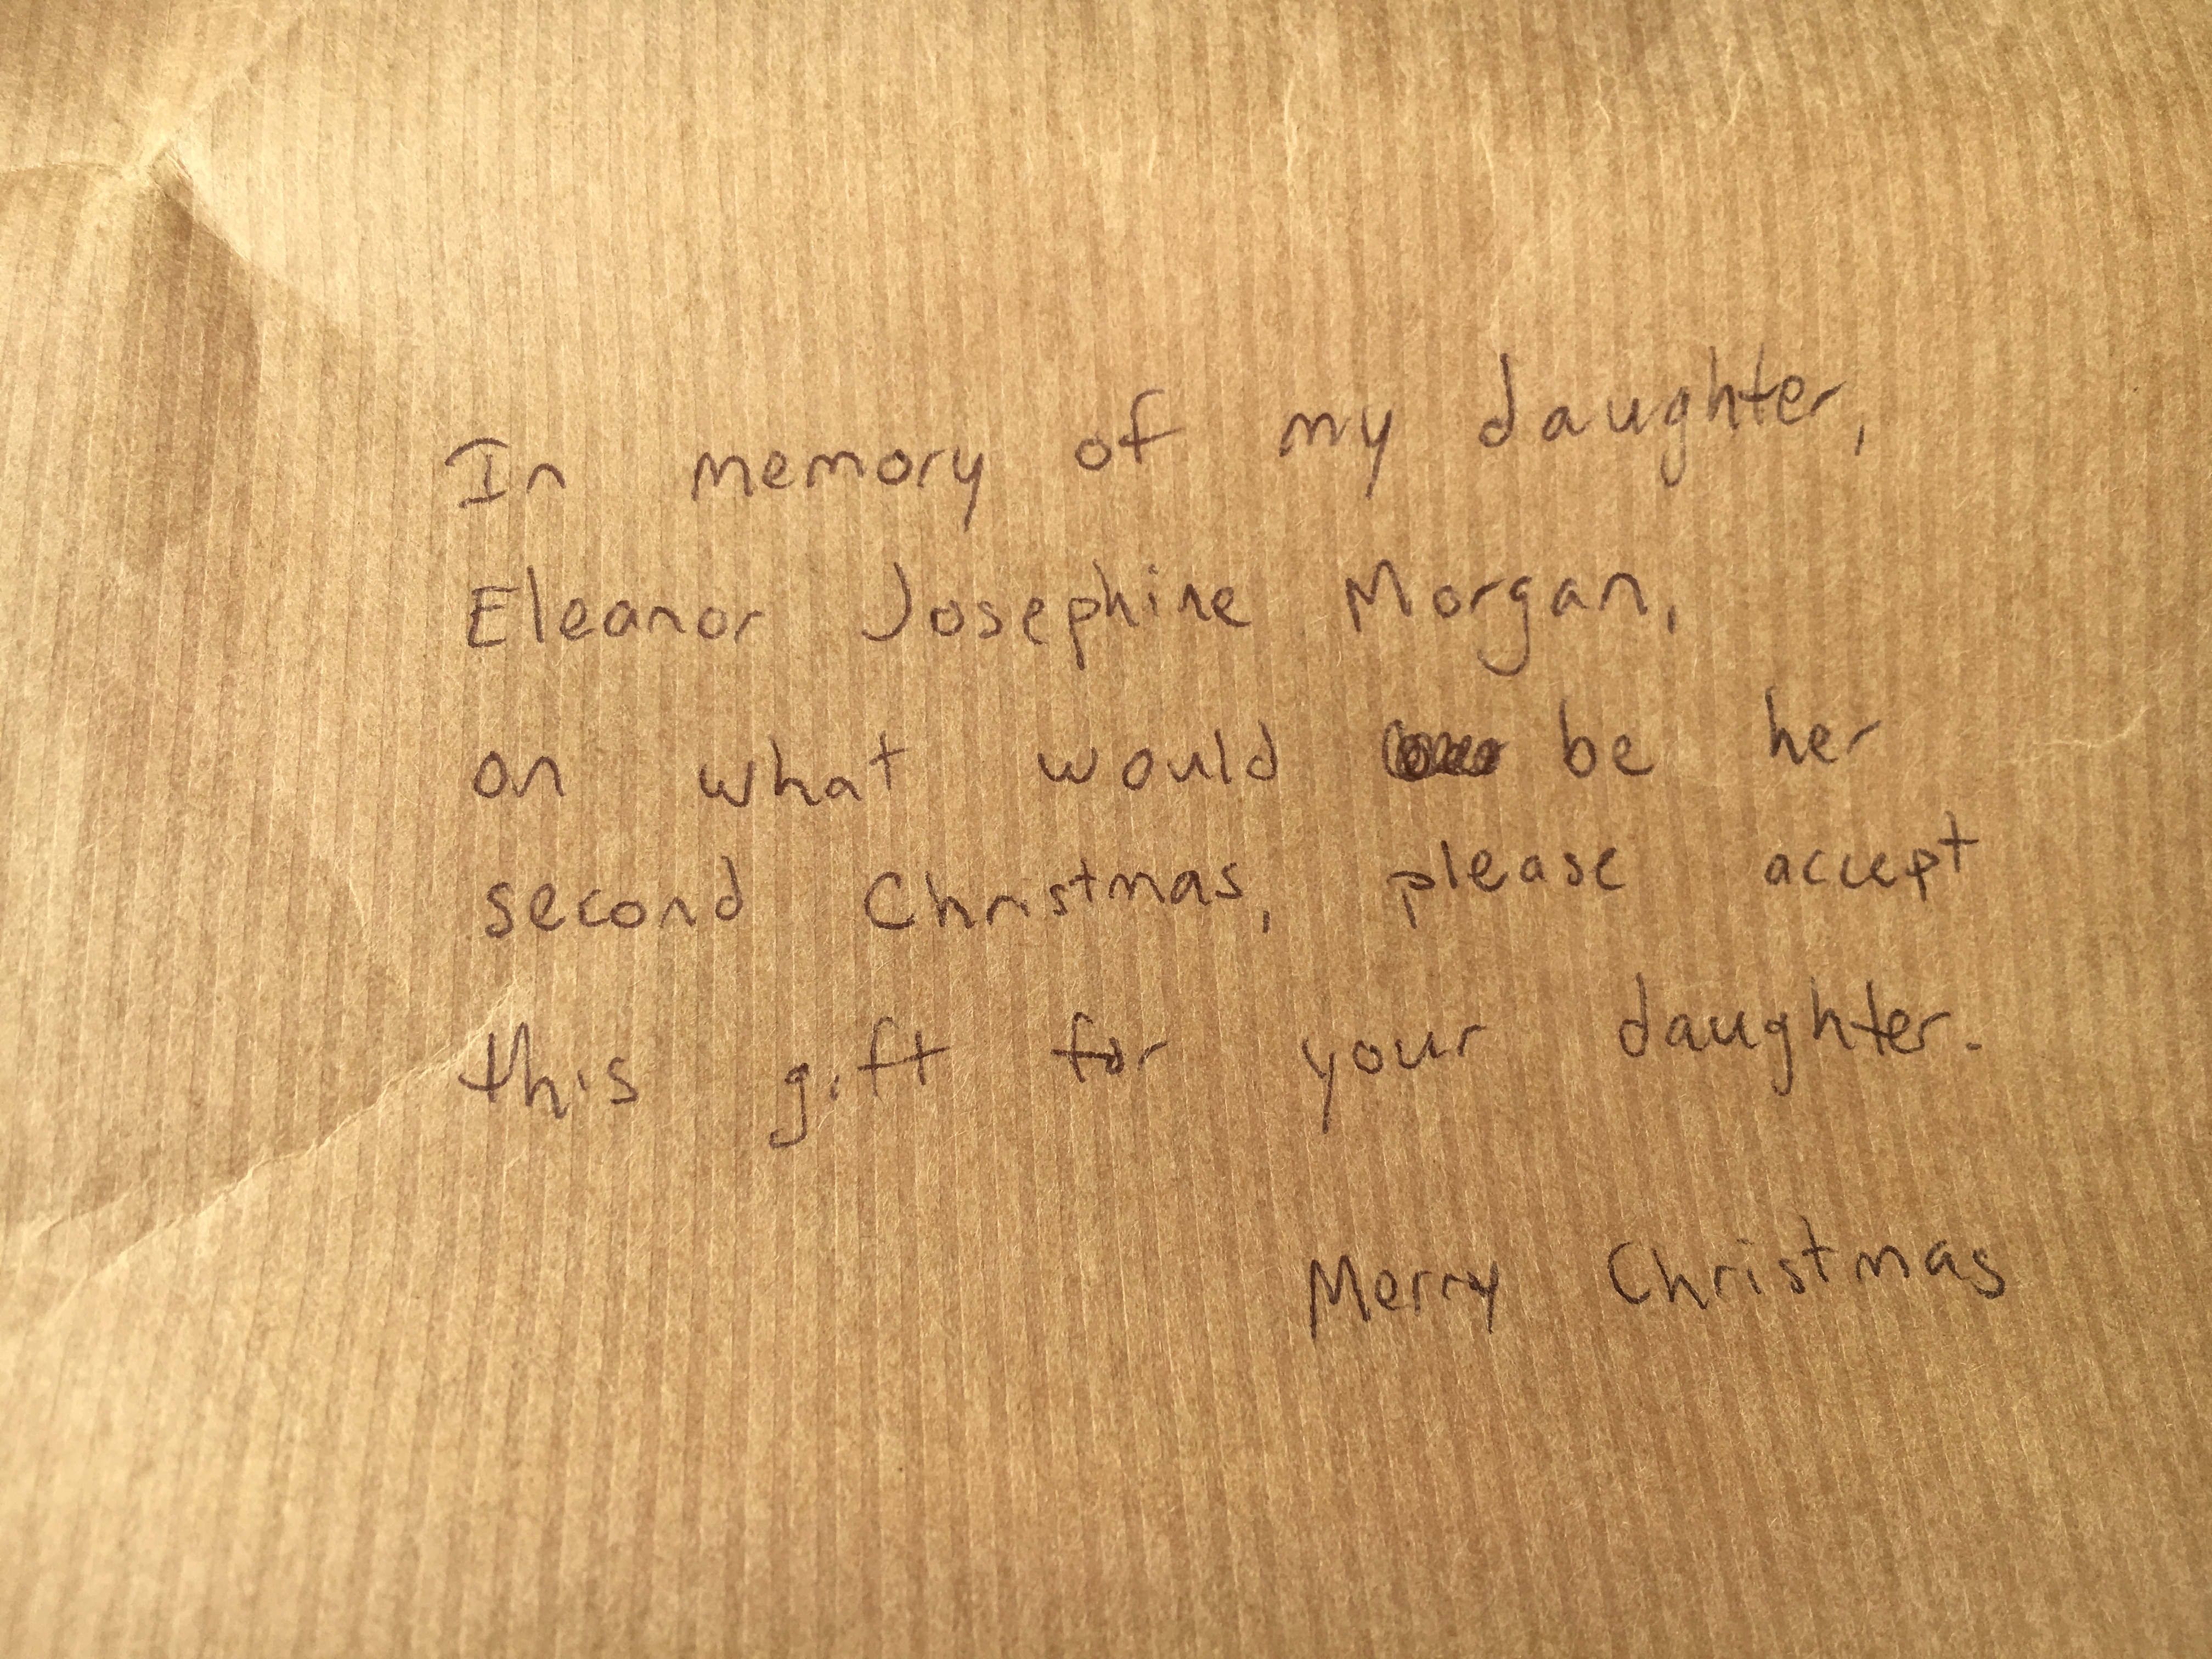 In memory of my daughter,
Eleanor Josephine Morgan,
on what would be her
second Christmas, please accept
this gift for your daughter.
Merry Christmas